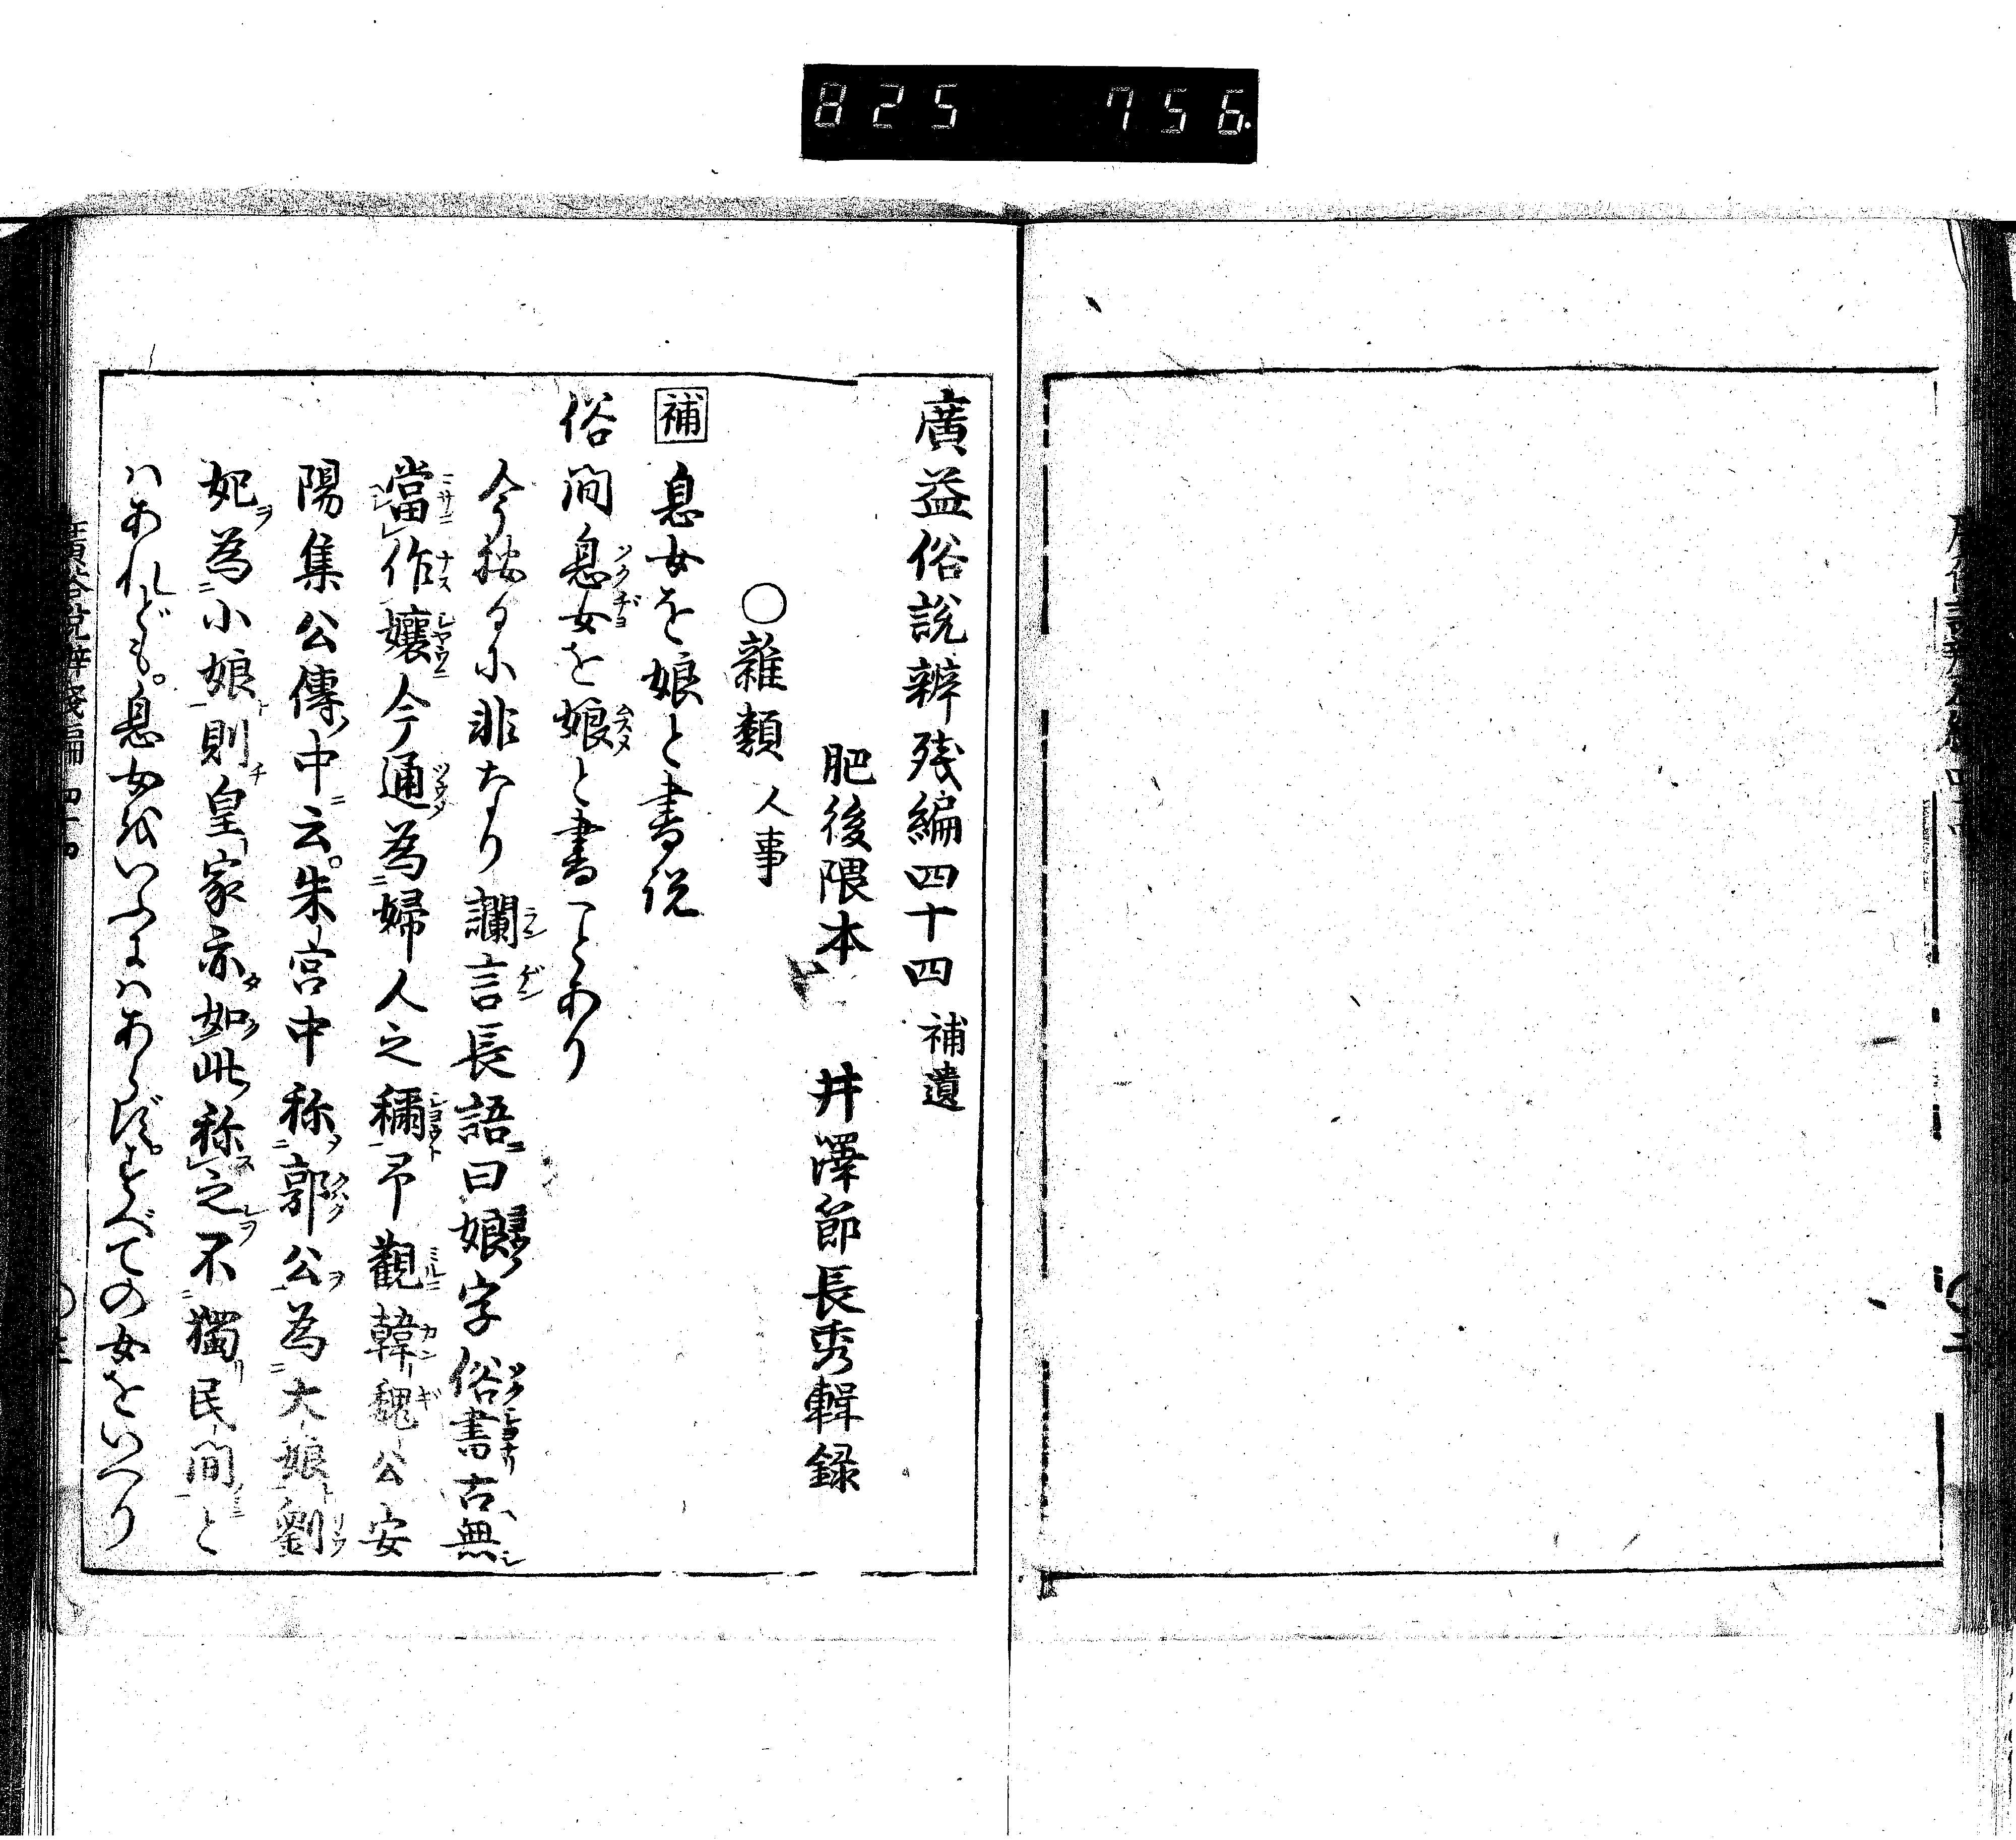 825 756.
廣益俗説辨残編四十四 補遺
肥後隈本 井澤節長秀輯録
○雜類 人事
補 息女を娘と書説
俗間息女を娘と書ことあり
今按るに非なり讕言長語曰娘字俗書古無
當作孃今通為婦人之稱予觀韓魏公安
陽集公傳中云朱宮中称郭公為大娘劉
妃為小娘則皇家亦如此称之不獨民間と
ハあれども。息女をいふにハあらず。すべての女をいへり